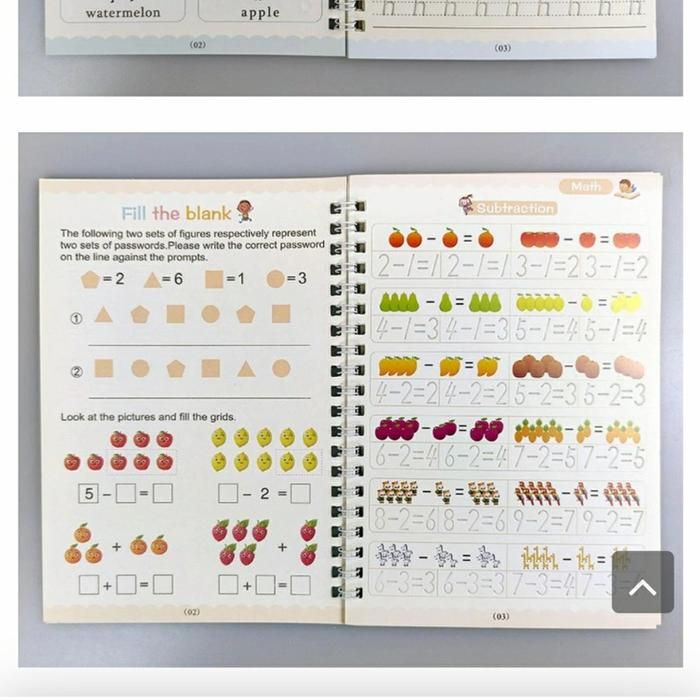 watermelon
apple
(02)
h h h h h h h h h
(03)
Fill the blank
The following two sets of figures respectively represent
two sets of passwords.Please write the correct password
on the line against the prompts.
=2 =6 =1 =3
①
②
Look at the pictures and fill the grids.
5 - =
- 2 =
+
+
+ =
+ =
(02)
Math
Subtraction
- = - =
2-1=1 2-1=1 3-1=2 3-1=2
- = - =
4-1=3 4-1=3 5-1=4 5-1=4
- = - =
4-2=2 4-2=2 5-2=3 5-2=3
- = - =
6-2=4 6-2=4 7-2=5 7-2=5
- = - =
8-2=6 8-2=6 9-2=7 9-2=7
- = - =
6-3=3 6-3=3 7-3=4 7-3
(03)